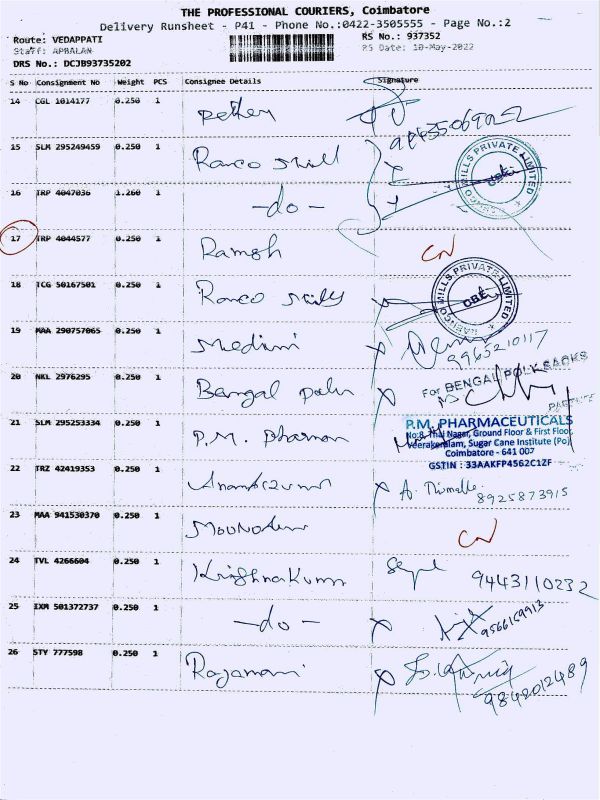 THE PROFESSIONAL COURIERS, Coimbatore
Delivery Runsheet - P41 - Phone No.:0422-3505555 - Page No.:2
Route: VEDAPPATI RS No.: 937352
Staff: APBALAN RS Date: 10-May-2022
DRS No.: DCJB93735202
S No Consignment No Weight PCS Consignee Details Signature
14 CGL 1014177 0.250 1
15 SLM 295249459 0.250 1 Ranco Mill
16 TRP 4047036 1.260 1 -do-
MILLS PRIVATE LIMITED
17 TRP 4044577 0.250 1 Ramesh CN
18 TCG 50167501 0.250 1 Ranco Mills
MILLS PRIVATE LIMITED
19 MAA 290757065 0.250 1 Medini
9965210117
20 NKL 2976295 0.250 1 Bengal
For BENGAL POLY SACKS
21 SLM 295253334 0.250 1 P.M. Pharma
P.M. PHARMACEUTICALS
No:8, Thai Nagar, Ground Floor & First Floor,
Veerakeralam, Sugar Cane Institute (Po)
Coimbatore - 641 007
GSTIN : 33AAKFP4562C1ZF
22 TRZ 42419353 0.250 1
8925873915
23 MAA 941530370 0.250 1 CN
24 TVL 4266604 0.250 1 Krishnakumar 9443110232
25 IXM 501372737 0.250 1 -do- 9566159913
26 STY 777598 0.250 1 Rajamani
9842012489